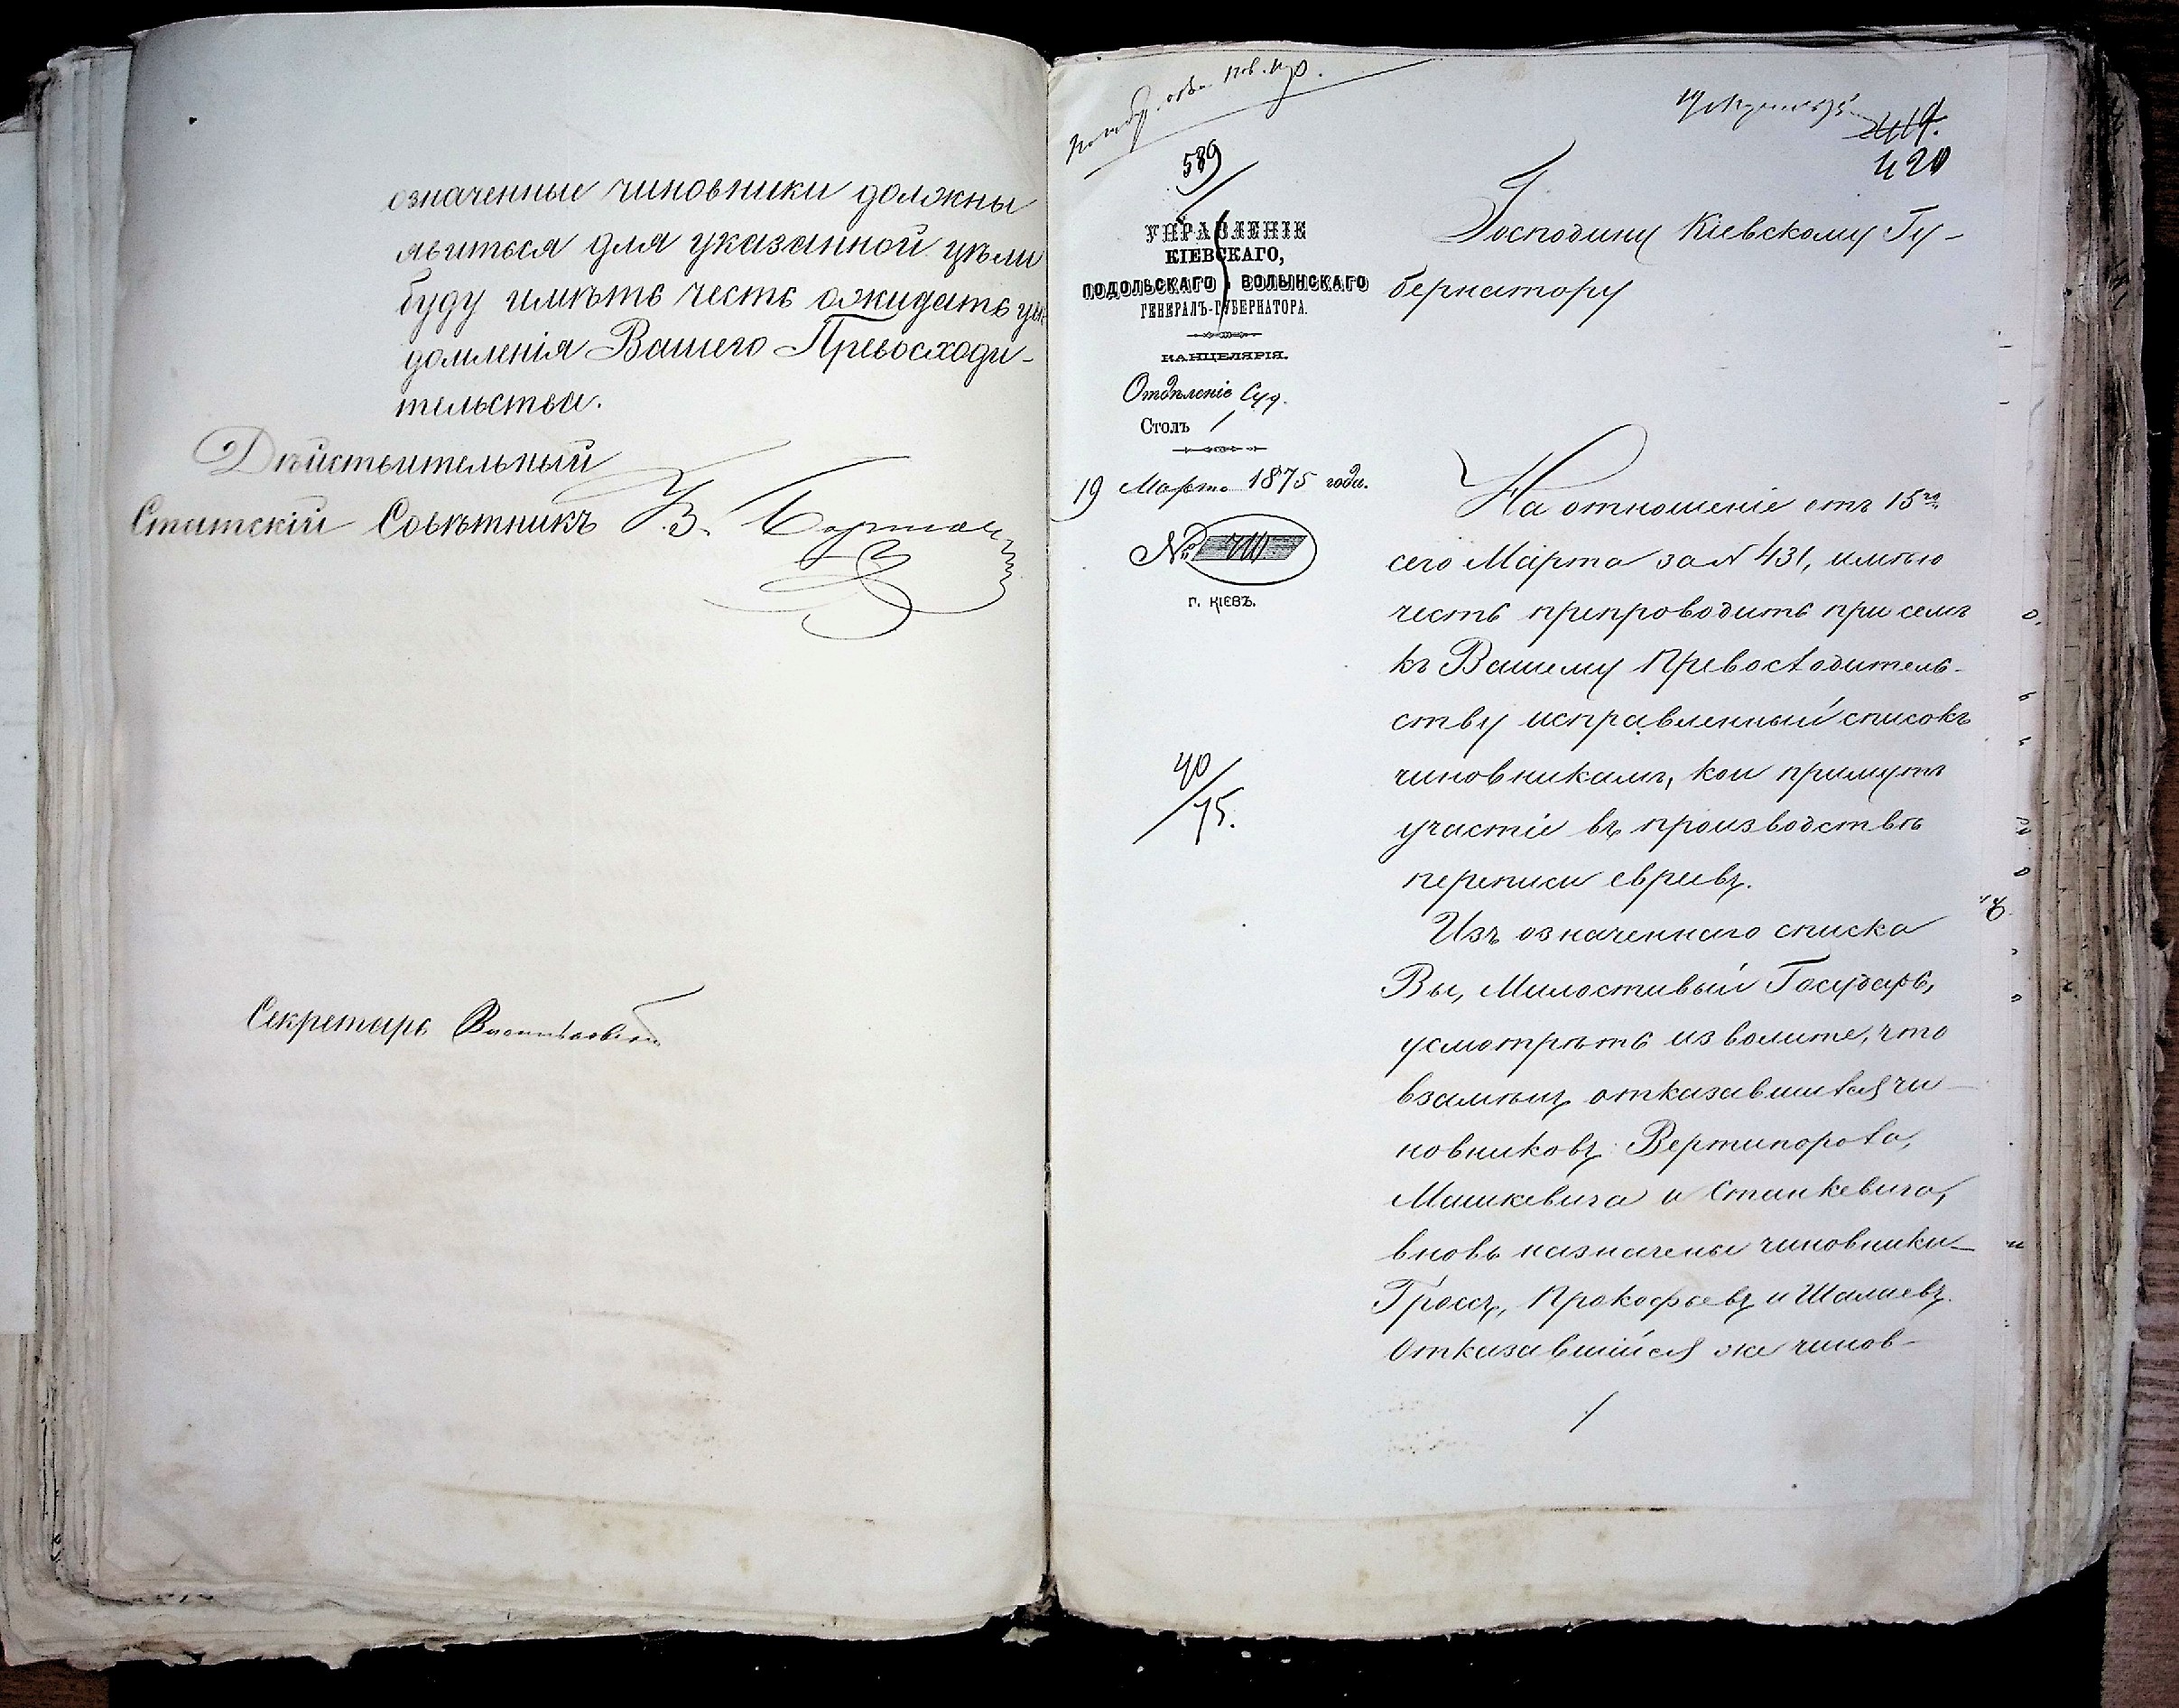 означенные чиновники должны
явиться для указанной цѣли
буду имѣть честь ожидать увѣ
домленія Вашего Превосходи-
тельства.
Дѣйствительный
Статскій Совѣтникъ
Секретарь
419.
420
589
УПРАВЛЕНІЕ
КІЕВСКАГО,
ПОДОЛЬСКАГО и ВОЛЫНСКАГО
ГЕНЕРАЛЪ-ГУБЕРНАТОРА.
КАНЦЕЛЯРІЯ.
Отдѣленіе Суд.
Столъ 1
19 Марта 1875 года.
№
Г. КІЕВЪ.
40/75.
Господину Кіевскому Гу-
бернатору
На отношеніе отъ 15го
сего Марта за N 431, имѣю
честь препроводить при семъ
къ Вашему Превосходитель-
ству исправленный списокъ
чиновникамъ, кои примутъ
участіе въ производствѣ
переписи евреевъ.
Изъ означеннаго списка
Вы, Милостивый Государь,
усмотрѣть изволите, что
взамѣнъ отказавшихся чи-
новниковъ: Вертипороха,
Машкевича и Станкевича,
вновь назначены чиновники-
Гроссъ, Прокофьевъ и Шалаевъ.
Отказавшійся же чинов-